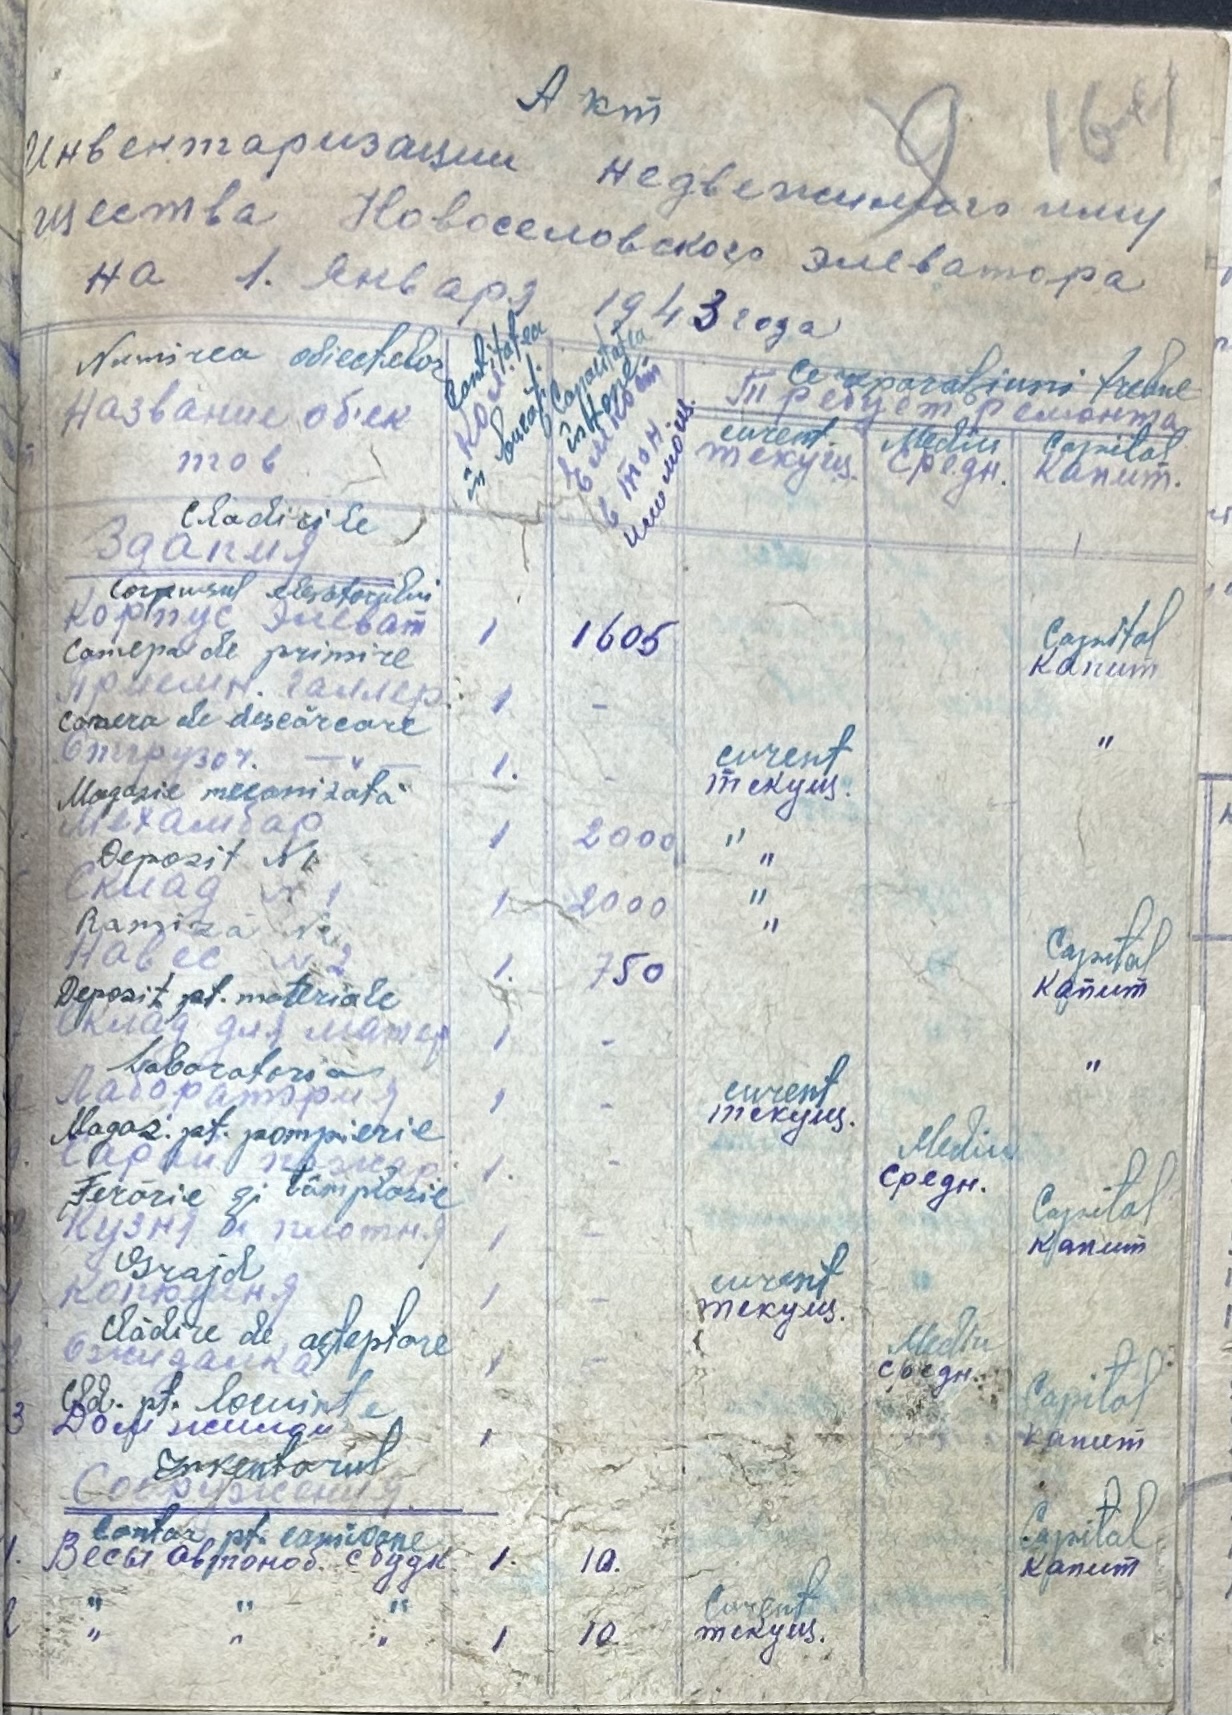 Акт
Инвентаризации недвежимого иму
щества Новоселовского элеватора
на 1. Января 1943 года
Numirea obiectelor
Название объек
тов
Cantitatea
în bucăți
Кол.
Capacitatea
în tone
Емкост
в тон
или мощ.
Ce reparațiuni trebue
Требует ремонта
curent. Mediu Capital
текущ. Средн. Капит.
Clădirile
Здания
Corpusul elevatorului
Корпус Элеват 1 1605 Capital
Капит
Camera de primire
приемн. галлер. 1 -
camera de descărcare "
Отгрузоч. —"— 1. - curent
текущ.
Magazie mecanizată
Механбар 1 2000 "
Deposit N1 "
Склад N 1 1 2000 "
Ramiză "
Навес N 2 1. 750 Capital
Капит
Deposit pt. materiale
Склад для матер 1 -
Laboratoria "
Лаборатория 1 - curent
текущ.
Magaz. pt. pompierie
Сарай пожар. 1. - Mediu
Средн.
Ferărie și tâmplărie
Кузня и плотня 1 - Capital
Капит
Grajd
Конюшня 1 - curent
текущ.
Clădire de așteptare
Ожидалка 1 - Mediu
Средн.
Clăd. pt. locuințe
3 Дом жилой 1 Capital
Капит
Inventarul
Сооружения
Cantar pt. camioane
1. Весы Автомоб. с будк. 1. 10. Capital
Капит
" " "
2 " " " 1 10 Curent
текущ.